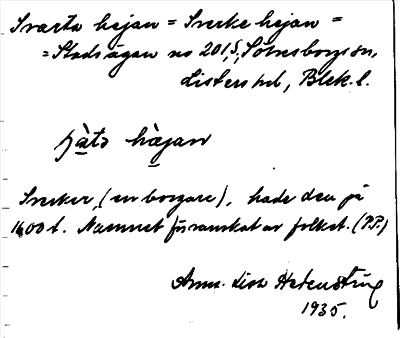 Svarta hejan = Sverke hejan =
= Stadsägan no 201, Sölvesborgs sn,
Listers hd, Blek. l.
hejan
Sverker, (en borgare), hade den på
1600 t. Namnet förvanskat av folket. (P.P.)
Anm. Lisa
1935.